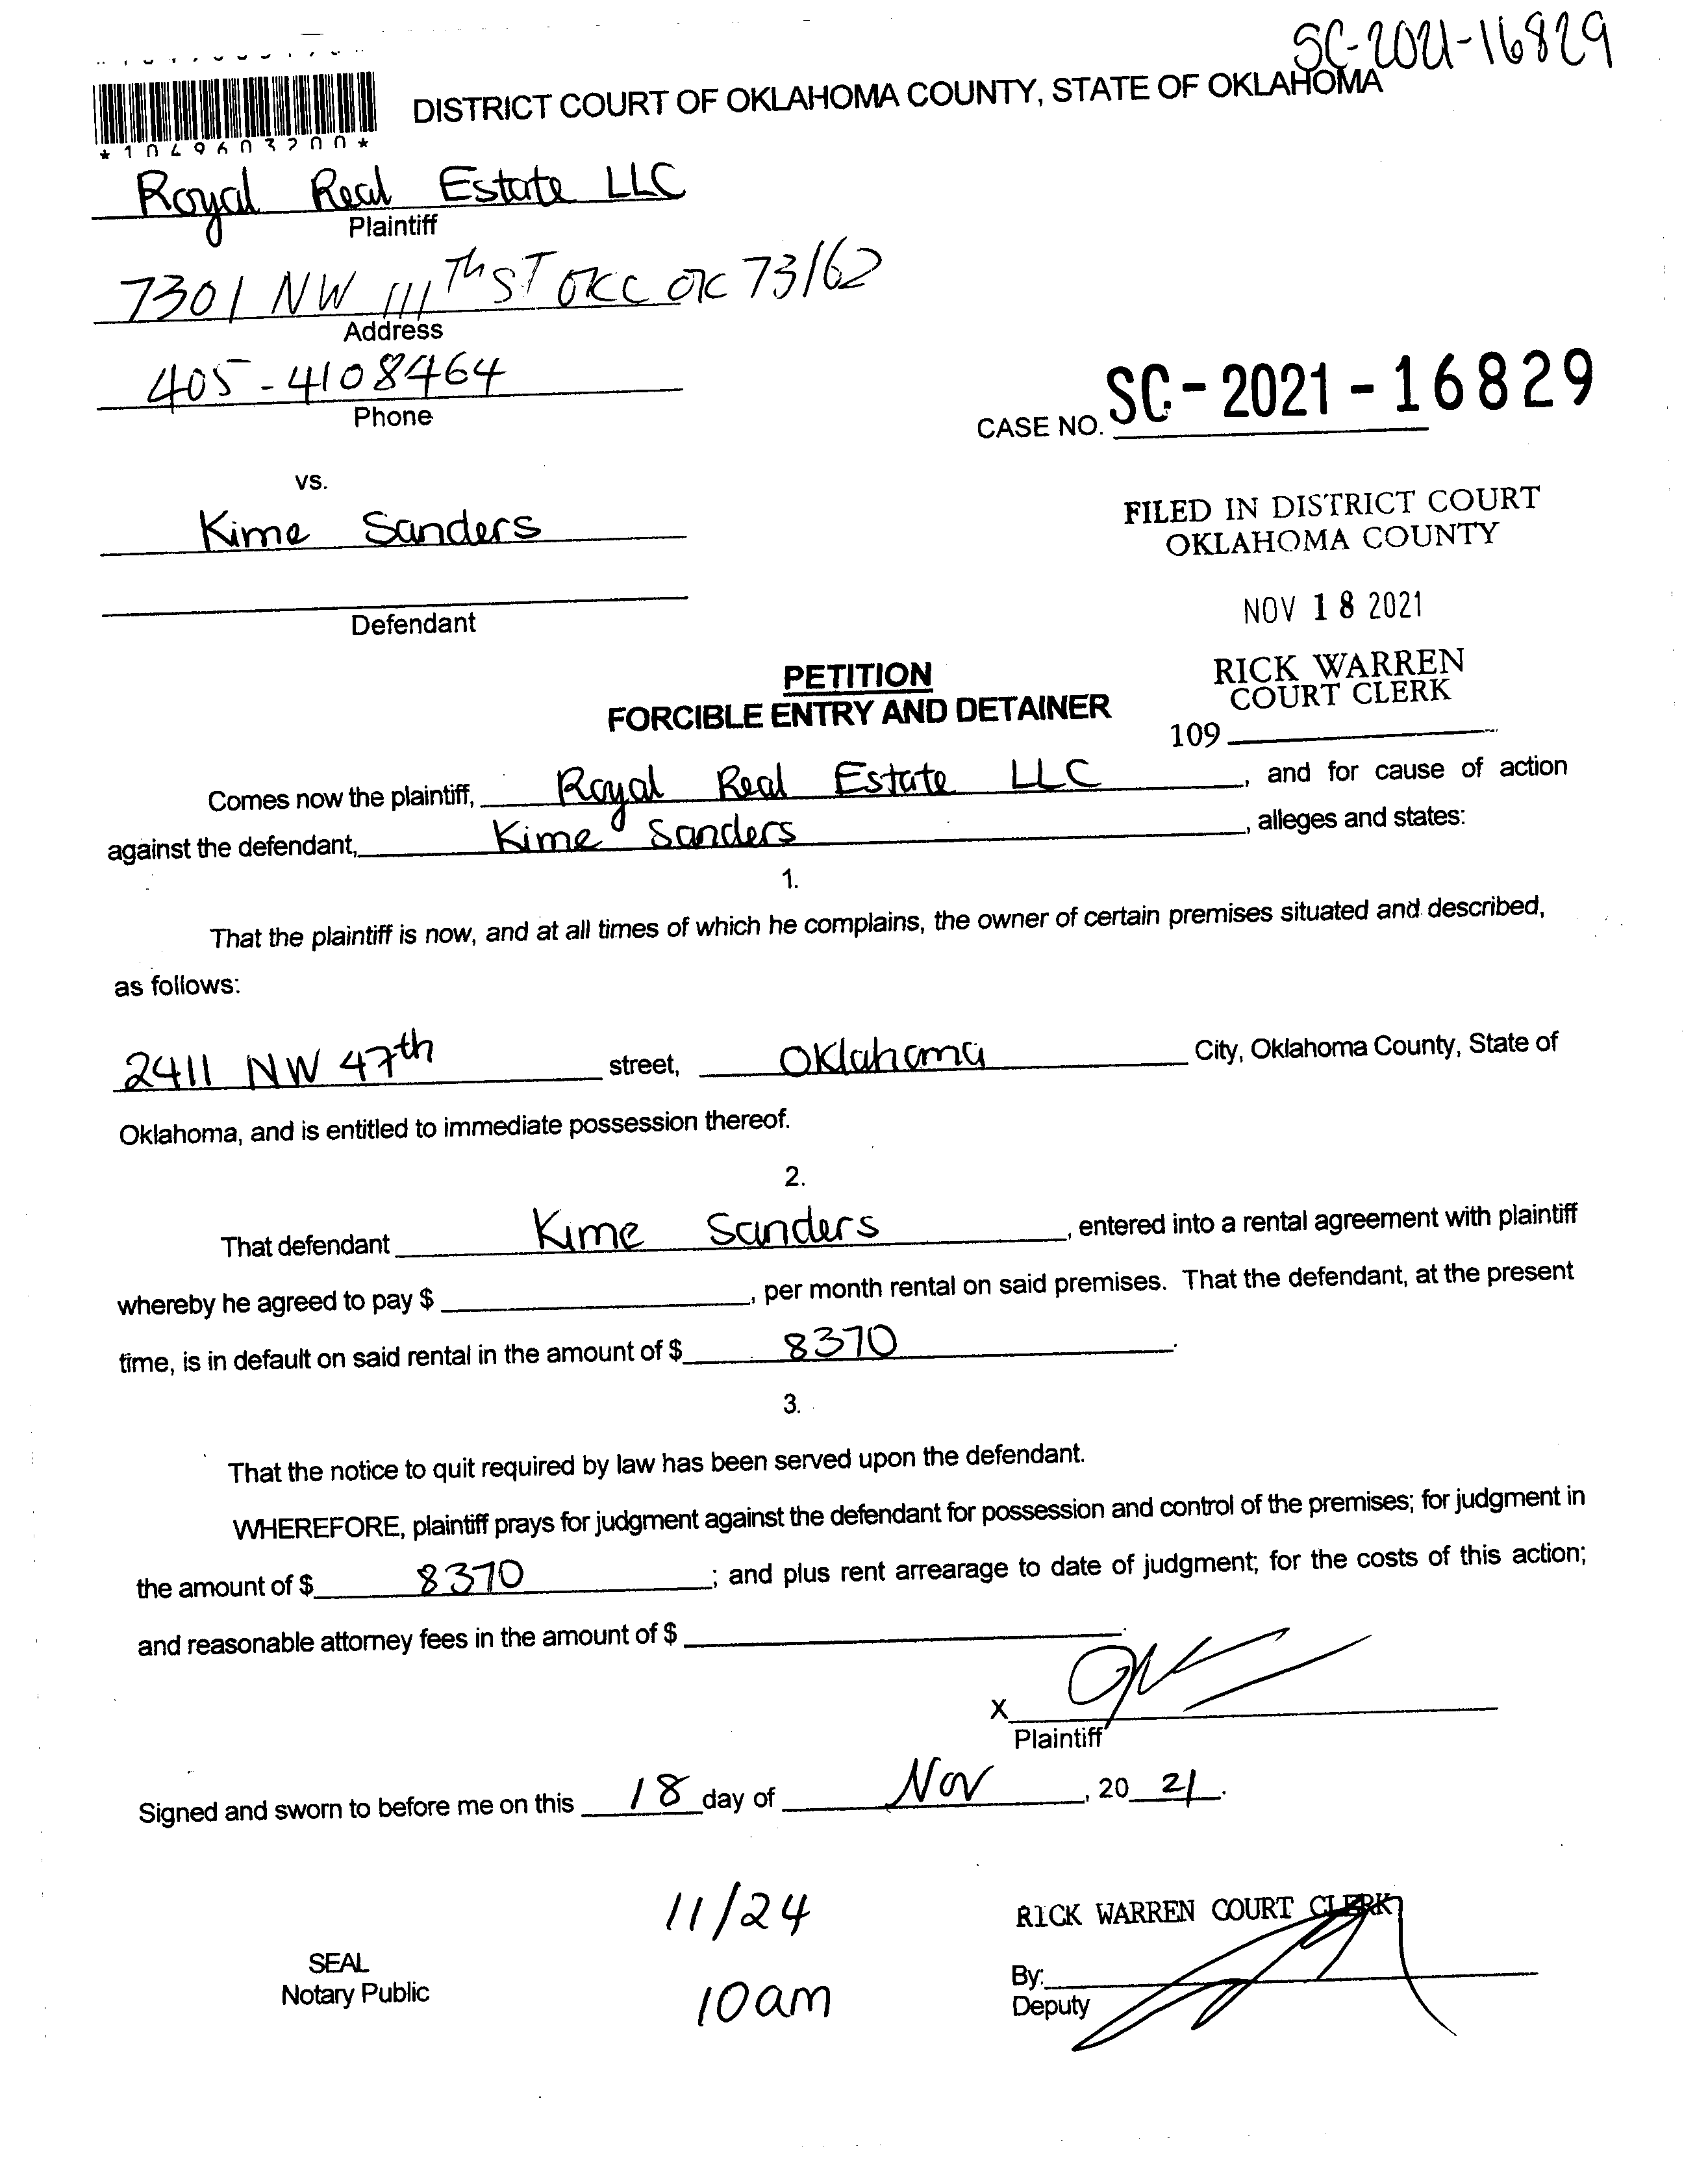 SC-2021-16829
DISTRICT COURT OF OKLAHOMA COUNTY, STATE OF OKLAHOMA
Royal Real Estate LLC
Plaintiff
7301 NW 111th ST OKC OK 73162
Address
405-4108464
Phone
CASE NO. SC-2021-16829
vs.
Kime Sanders
FILED IN DISTRICT COURT
OKLAHOMA COUNTY
Defendant
NOV 18 2021
PETITION
FORCIBLE ENTRY AND DETAINER
RICK WARREN
COURT CLERK
109
Comes now the plaintiff, Royal Real Estate LLC, and for cause of action
against the defendant, Kime Sanders, alleges and states:
1.
That the plaintiff is now, and at all times of which he complains, the owner of certain premises situated and described,
as follows:
2411 NW 47th street, Oklahoma City, Oklahoma County, State of
Oklahoma, and is entitled to immediate possession thereof.
2.
That defendant Kime Sanders, entered into a rental agreement with plaintiff
whereby he agreed to pay $ , per month rental on said premises. That the defendant, at the present
time, is in default on said rental in the amount of $ 8370.
3.
That the notice to quit required by law has been served upon the defendant.
WHEREFORE, plaintiff prays for judgment against the defendant for possession and control of the premises; for judgment in
the amount of $ 8370; and plus rent arrearage to date of judgment; for the costs of this action;
and reasonable attorney fees in the amount of $ .
X
Plaintiff
Signed and sworn to before me on this 18 day of Nov, 20 21.
11/24
10am
SEAL
Notary Public
RICK WARREN COURT CLERK
By:
Deputy